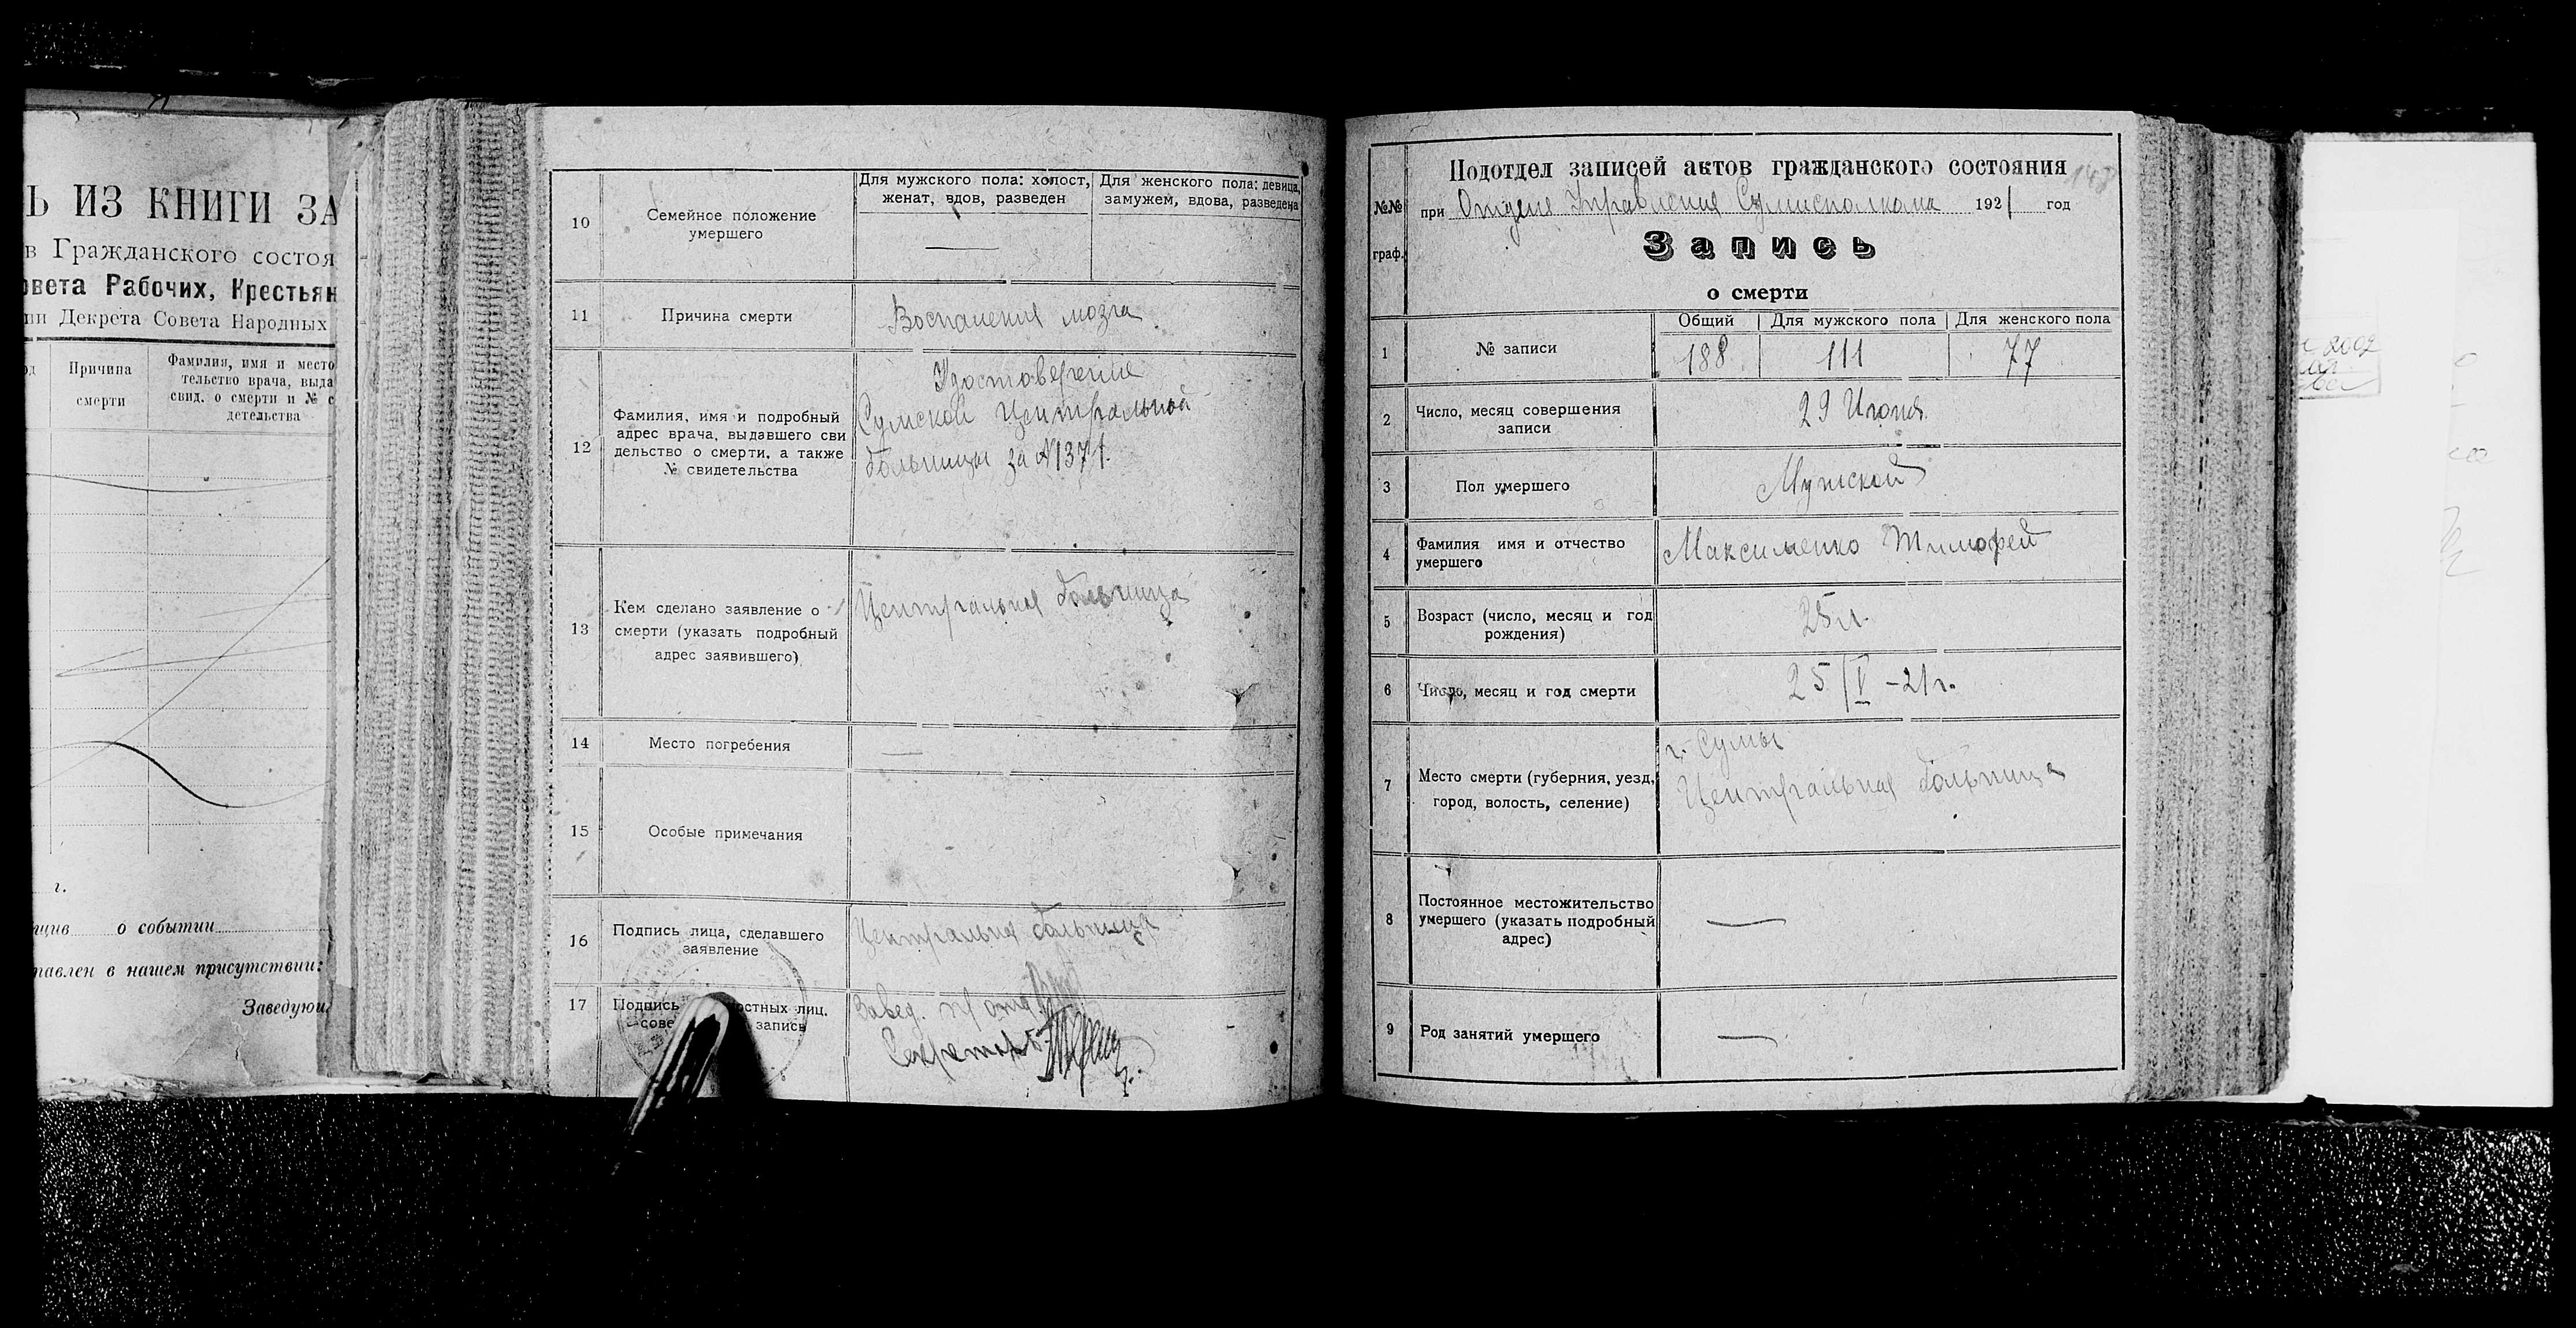 Ь ИЗ КНИГИ ЗА
в Гражданского состоя
овета Рабочих, Крестьян
ии Декрета Совета Народных
Причина
смерти
Фамилия, имя и место
тельство врача, выда
свид. о смерти и № с
детельства
г.
о событии
тавлен в нашем присутствии:
Заведующ
10
Семейное положение
умершего
Для мужского пола: холост,
женат, вдов, разведен
Для женского пола: девица,
замужем, вдова, разведена
—
11
Причина смерти
Воспаления мозга
12
Фамилия, имя и подробный
адрес врача, выдавшего сви
дельство о смерти, а также
№ свидетельства
Удостоверение
Сумской Центральной
больницы за №1371.
13
Кем сделано заявление о
смерти (указать подробный
адрес заявившего)
Центральная больница
14
Место погребения
—
15
Особые примечания
16
Подпись лица, сделавшего
заявление
Центральная больница
17
Подпись остных лиц,
сове запись
Завед. п/отд
Секретарь
Подотдел записей актов гражданского состояния
148
№№
граф.
при Отделе Управления Сумисполкома 1921 год
Запись
о смерти
1
№ записи
Общий
Для мужского пола
Для женского пола
188
111
77
2
Число, месяц совершения
записи
29 Июня
3
Пол умершего
Мужской
4
Фамилия имя и отчество
умершего
Максименко Тимофей
5
Возраст (число, месяц и год
рождения)
25 л.
6
Число, месяц и год смерти
25/V-21г.
7
Место смерти (губерния, уезд,
город, волость, селение)
г. Сумы
Центральная больница
8
Постоянное местожительство
умершего (указать подробный
адрес)
—
9
Род занятий умершего
—
2002